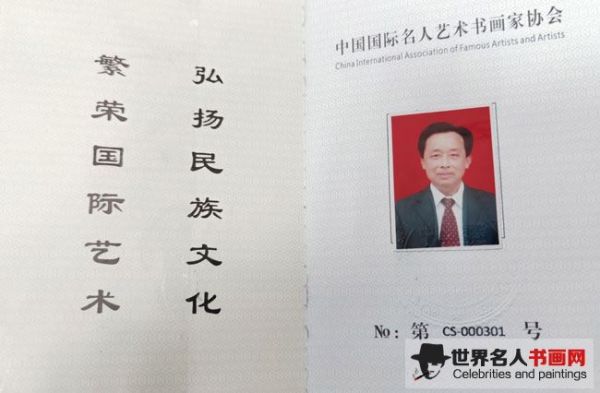 弘扬民族文化
繁荣国际艺术
中国国际名人艺术书画家协会
China International Association of Famous Artists and Artists
No：第 CS-000301 号
世界名人书画网
Celebrities and paintings